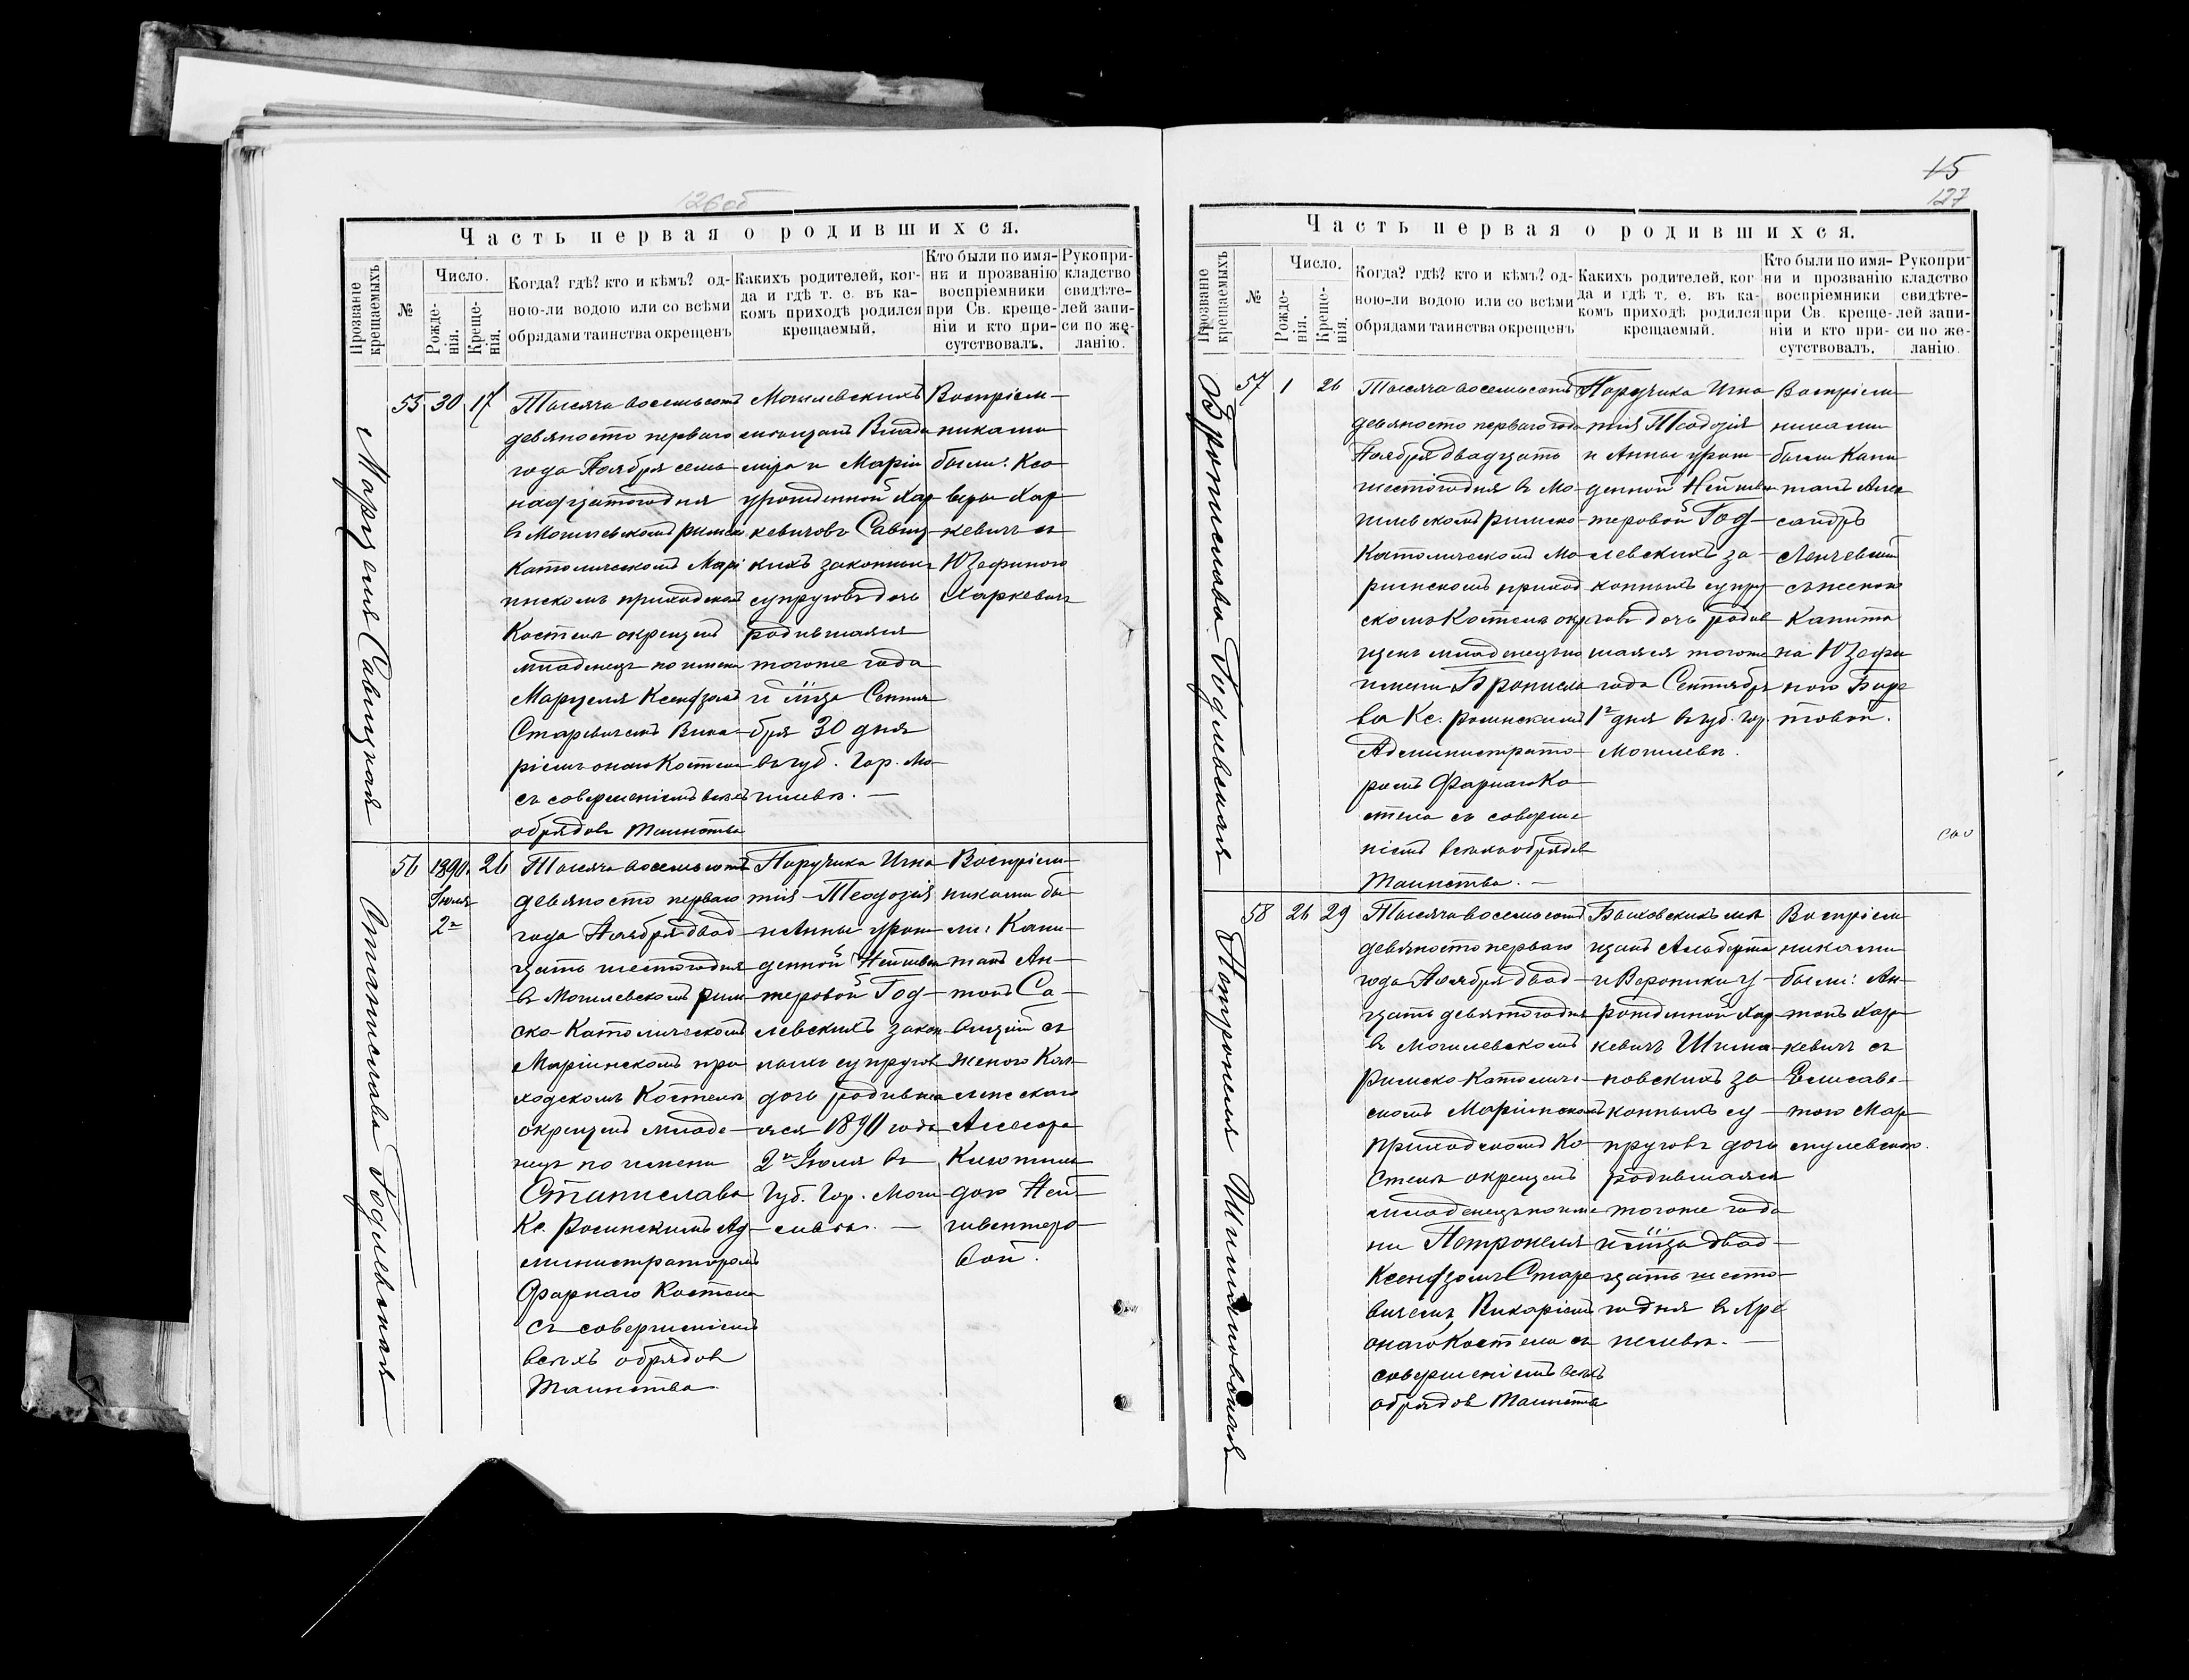 126 об
Часть первая о родившихся.
Прозваніе крещаемыхъ
№
Число.
Рожде-
нія.
Креще-
нія.
Когда? гдѣ? кто и кѣмъ? од-
ною-ли водою или со всѣми
обрядами таинства окрещенъ
Какихъ родителей, ког-
да и гдѣ т. е. въ ка-
комъ приходѣ родился
крещаемый.
Кто были по имя-
ни и прозванію
воспріемники
при Св. креще-
ніи и кто при-
сутствовалъ.
Рукопри-
кладство
свидѣте-
лей запи-
си по же-
ланію.
Марцеля Савицкая
55 30 17
Тысяча восемьсотъ
девяносто перваго
года Ноября семь
надцатогодня
въ Могилевскомъ римско
Католическомъ Марі
инскомъ приходскомъ
Костелѣ окрещенъ
младенецъ по имени
Марцеля Ксендзомъ
Старевичемъ Вика-
ріемъ онаго Костела
съ совершеніемъ всѣхъ
обрядовъ Таинства
Могилевскихъ
мѣщанъ Влади
міра и Маріи
урожденной Хар
кевичовъ Савиц
кихъ законныхъ
супруговъ дочь
родившаяся
тогоже года
и мца Сентя
бря 30 дня
въ губ. гор. Мо-
гилевѣ. —
Воспріем-
никами
были: Ксо
веры Хар
кевичъ съ
Юзефиною
Харкевичъ
Станислава Годлевская
56 1890. 26
Іюля
2го
Тысяча восемьсотъ
девяносто перваго
года Ноября двад-
цать шестогодня
въ Могилевскомъ рим
ско-Католическомъ
Маріинскомъ при
ходскомъ Костелѣ
окрещенъ младе-
нецъ по имени
Станислава
Кс. Росинскимъ Ад-
министраторомъ
Фарнаго Костела
съ совершеніемъ
всѣхъ обрядовъ
Таинства
Поручика Игна
тія-Теодозія
и Анны урож-
денной Нейшвен
теровой Год-
левскихъ закон
ныхъ супруговъ
дочь родивша
яся 1890 года
2го Іюля въ
Губ. Гор. Моги
левѣ. —
Воспріем-
никами бы-
ли: Капи-
танъ Ан-
тонъ Са-
вицкій съ
женою Кол-
лежскаго
Асесора
Клотиль
дою Ней-
швентеро-
вой.
15
127
Часть первая о родившихся.
Прозваніе крещаемыхъ
№
Число.
Рожде-
нія.
Креще-
нія.
Когда? гдѣ? кто и кѣмъ? од-
ною-ли водою или со всѣми
обрядами таинства окрещенъ
Какихъ родителей, ког
да и гдѣ т. е. въ ка-
комъ приходѣ родился
крещаемый.
Кто были по имя-
ни и прозванію
воспріемники
при Св. креще-
ніи и кто при-
сутствовалъ.
Рукопри-
кладство
свидѣте-
лей запи-
си по же-
ланію.
Бронислава Годлевская
57 1 26
Тысяча восемьсотъ
девяносто перваго года
Ноября двадцать
шестогодня въ Мо-
гилевскомъ римско-
Католическомъ Ма
ріинскомъ приход
скомъ Костелѣ окре
щенъ младенецъ по
имени Бронисла
ва Кс. Росинскимъ
Администрато-
ромъ Фарнаго Ко
стела съ соверше
ніемъ всѣхъ обрядовъ
Таинства. —
Поручика Игна
тія Теодозія
и Анны урож-
денной Нейшвен
теровой Год-
левскихъ за-
конныхъ супру
говъ дочь родив
шаяся тогоже
года Сентября
1го дня въ губ. гор.
Могилевѣ.
Воспріем
никами
были Капи
танъ Алек
сандръ
съ женою
Капита
на Юзефи
ною Бире
товой.
Петронеля Шимановская
58 26 29
Тысяча восемьсотъ
девяносто перваго
года Ноября двад-
цать девятогодня
въ Могилевскомъ
Римско-Католиче-
скомъ Маріинскомъ
Приходскомъ Ко-
стелѣ окрещенъ
младенецъ по име
ни Петронеля
Ксендзомъ Старе
вичемъ Викаріемъ
онаго Костела съ
совершеніемъ всѣхъ
обрядовъ Таинства
Быховскихъ мѣ
щанъ Альберта
и Вероники у
рожденной Хар
кевичъ Шима-
новскихъ за-
конныхъ су-
пруговъ дочь
родившаяся
тогоже года
и мца двад-
цать шесто-
го дня въ
Воспріем
никами
были: Ан-
тонъ Хар
кевичъ съ
Елисаве-
тою